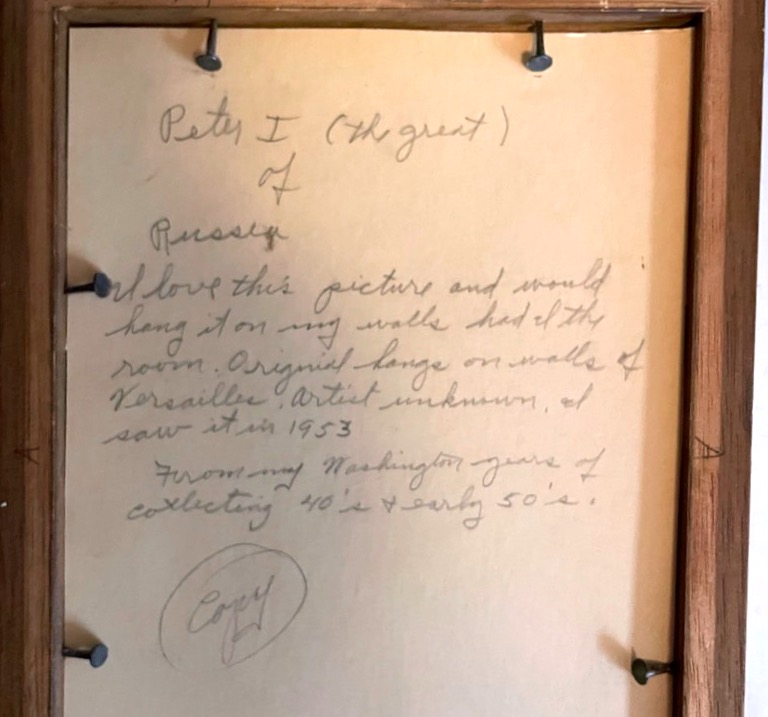 Peter I (the great)
of
Russia
I love this picture and would
hang it on my walls had I the
room. Original hangs on walls of
Versailles. Artist unknown. I
saw it in 1953
From my Washington years of
collecting 40's & early 50's.
Copy
A
A